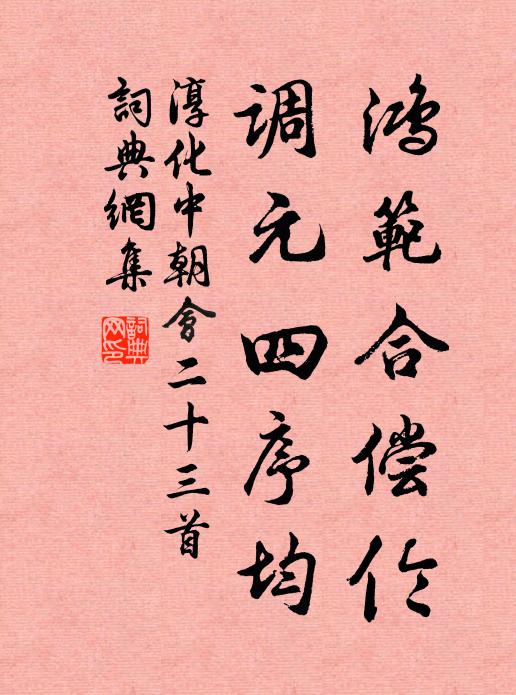 鸿範合偿伦
调元四序均
淳化中朝會二十三首
詞典網集
詞典网印